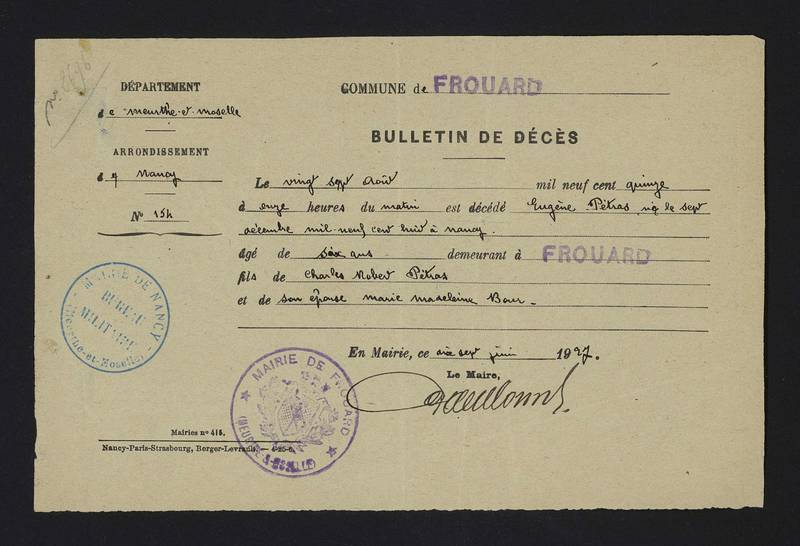 DÉPARTEMENT
de Meurthe-et-Moselle
ARRONDISSEMENT
de Nancy
No 154
COMMUNE de FROUARD
BULLETIN DE DÉCÈS
Le vingt sept Août mil neuf cent quinze
à onze heures du matin est décédé Eugène Pétras né le sept
décembre mil neuf cent huit à Nancy.
âgé de six ans demeurant à FROUARD
fils de Charles Robert Pétras
et de son épouse Marie Madeleine Bour
En Mairie, ce dix sept juin 1927.
Le Maire,
MAIRIE DE NANCY
BUREAU
MILITAIRE
(Meurthe-et-Moselle)
MAIRIE DE FROUARD
(MEURTHE-&-MOSELLE)
Mairies no 415.
Nancy-Paris-Strasbourg, Berger-Levrault. — 4-25-6.